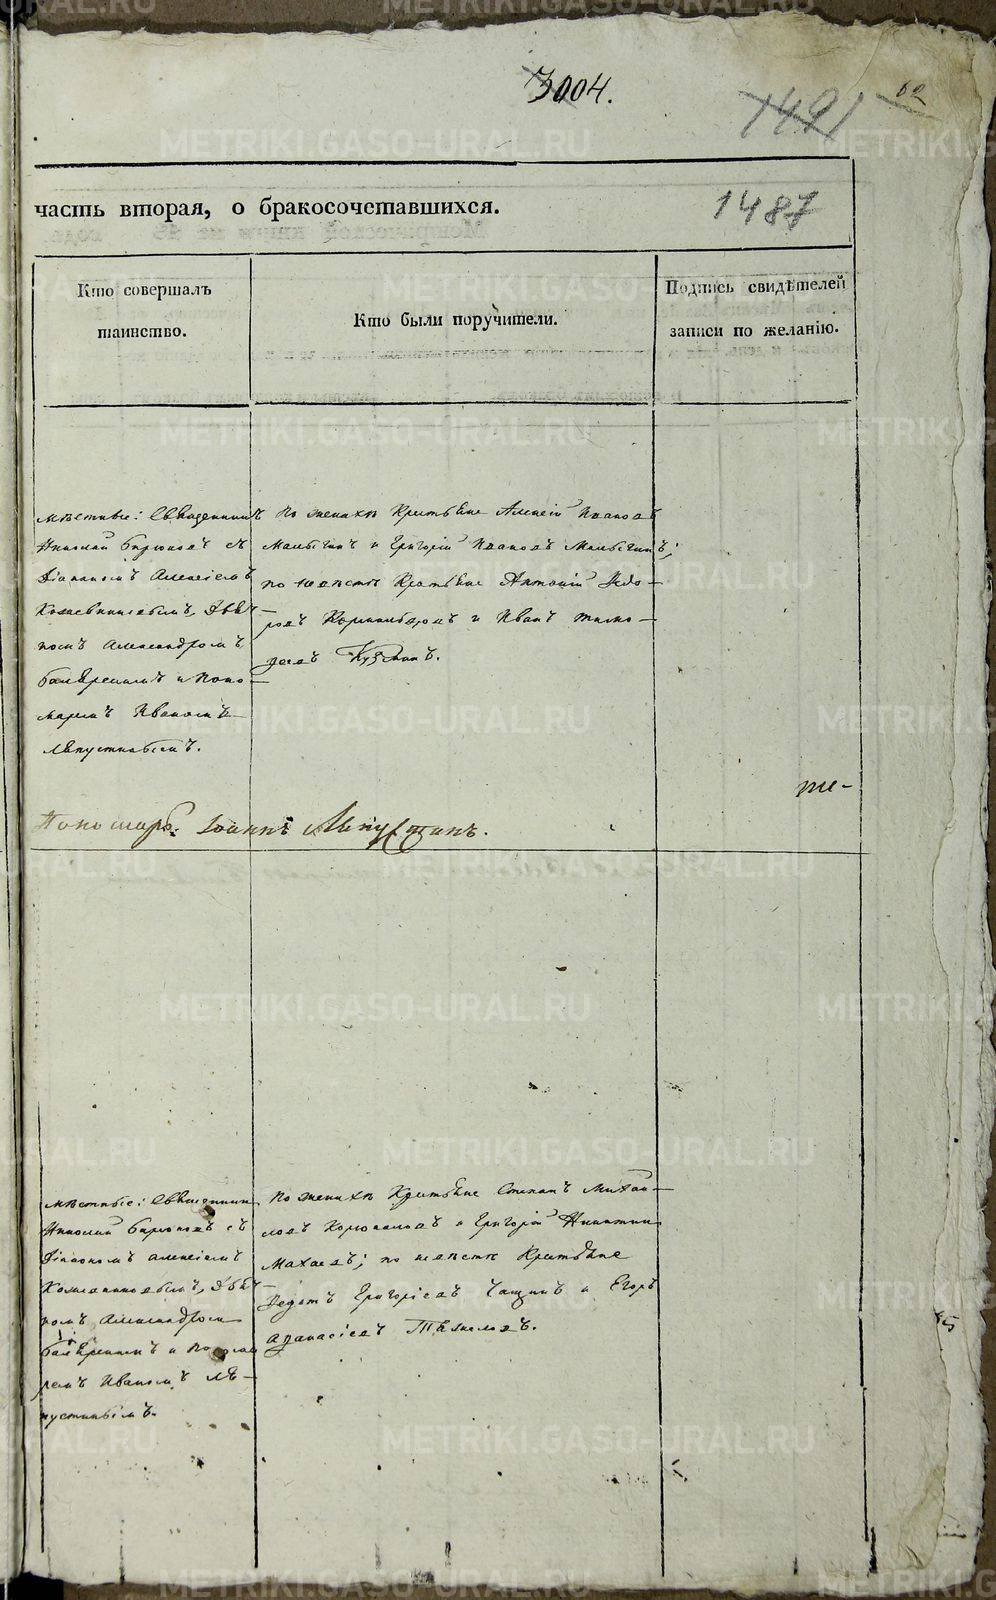 3004.
1491
62
часть вторая, о бракосочетавшихся.
1487
Кто совершалъ
таинство.
Кто были поручители.
Подпись свидѣтелей
записи по желанію.
мѣстные: Священникъ
Николай Бирюковъ съ
Діакономъ Алексіемъ
Кожевниковымъ, Дьяч-
комъ Александромъ
и Поно-
маремъ Иваномъ
Ляпустинымъ.
По женихѣ Крестьяне Алексій Ивановъ
Малыгинъ и Григорій Ивановъ Малыгинъ;
по невѣстѣ Крестьяне Антоній Ѳедо-
ровъ и Иванъ Тимо-
феевъ Кузминъ.
те-
Пономарь: Іоаннъ Ляпустинъ.
мѣстные: Священникъ
Николай Бирюковъ съ
Діакономъ Алексіемъ
Кожевниковымъ, Дьяч-
комъ Александромъ
и Понома
ремъ Иваномъ Ля-
пустинымъ.
По женихѣ Крестьяне Степанъ Михаи-
ловъ и Григорій Никитинъ
Махаевъ; по невѣстѣ Крестьяне
Федотъ Григоріевъ Чащинъ и Егоръ
Афанасіевъ